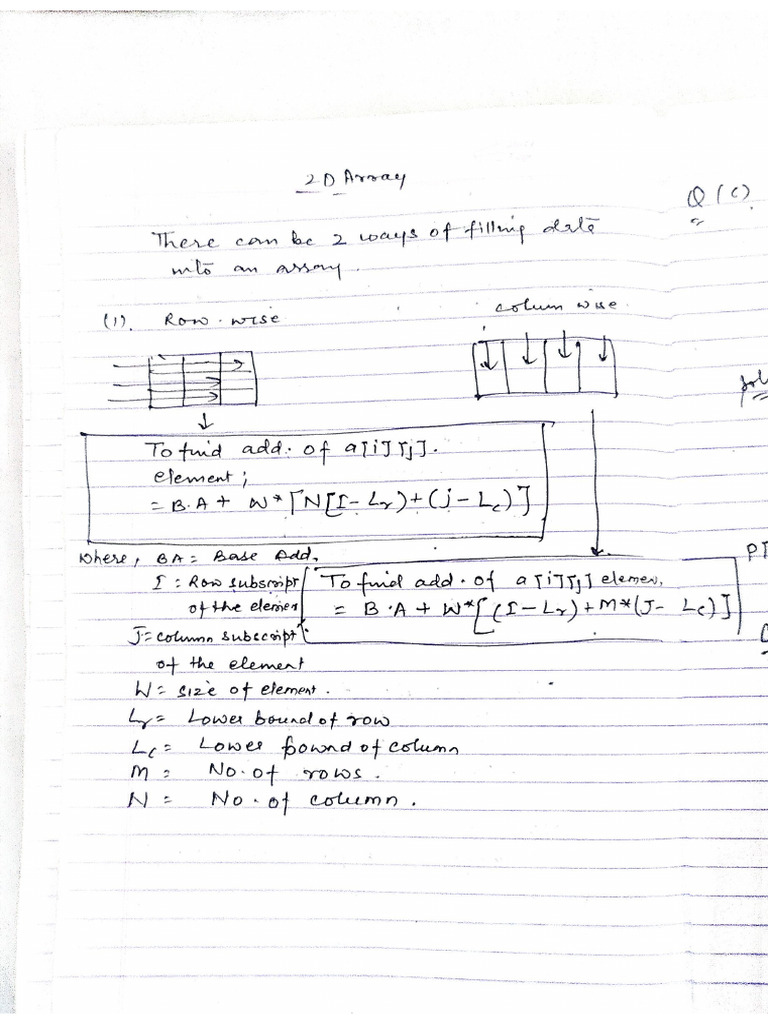 2D Array
Q1(c).
There can be 2 ways of filling data
into an array.
(1). Row-wise
colum wise
To find add. of a[i][j].
element;
= B.A + W*[N[I-Lr)+(j-Lc)]
Where, BA = Base Add,
I : Row subscript
of the elemen
To find add. of a[i][j] elemen,
= B.A + W*[(I-Lr)+M*(J-Lc)]
J = column subscript
of the element
W = size of element.
Lr = Lower bound of row
Lc = Lower bound of column
M = No. of rows.
N = No. of column.